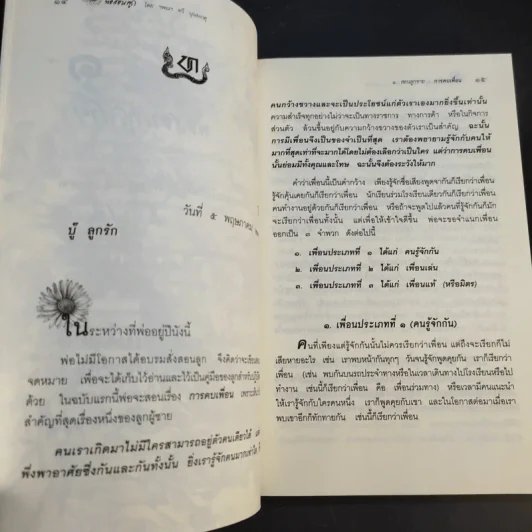 ๑๔
วันที่ ๕ พฤษภาคม
บู๊ ลูกรัก
ในระหว่างที่พ่ออยู่ปีนังนี้
พ่อไม่มีโอกาสได้อบรมสั่งสอนลูก จึงคิดว่าจะเขียน
จดหมาย เพื่อจะได้เก็บไว้อ่านและไว้เป็นคู่มือของลูกสำหรับ
ด้วย ในฉบับแรกนี้พ่อจะสอนเรื่อง การคบเพื่อน เพราะ
สำคัญที่สุดเรื่องหนึ่งของลูกผู้ชาย
คนเราเกิดมาไม่มีใครสามารถอยู่ตัวคนเดียวได้
พึ่งพาอาศัยซึ่งกันและกันทั้งนั้น ยิ่งเรารู้จักคนมากเท่าใด
๑. สอนลูกชาย - การคบเพื่อน ๑๕
คนกว้างขวางและจะเป็นประโยชน์แก่ตัวเราเองมากยิ่งขึ้นเท่านั้น
ความสำเร็จทุกอย่างไม่ว่าจะเป็นทางราชการ ทางการค้า หรือในกิจการ
ส่วนตัว ล้วนขึ้นอยู่กับความกว้างขวางของตัวเราเป็นสำคัญ ฉะนั้น
การมีเพื่อนจึงเป็นของจำเป็นที่สุด เราต้องพยายามรู้จักกับคนให้
มากที่สุดเท่าที่จะมากได้โดยไม่ต้องเลือกว่าเป็นใคร แต่ว่าการคบเพื่อน
นั้นย่อมมีทั้งคุณและโทษ ฉะนั้นจึงต้องระวังให้มาก
คำว่าเพื่อนนี้เป็นคำกว้าง เพียงรู้จักชื่อเสียงพูดจากันก็เรียกว่าเพื่อน
รู้จักคุ้นเคยกันก็เรียกว่าเพื่อน นักเรียนร่วมโรงเรียนเดียวกันก็เรียกว่าเพื่อน
คนทำงานอยู่ด้วยกันก็เรียกว่าเพื่อน หรือถ้าจะพูดไปแล้วคนที่รู้จักกันก็มัก
จะเรียกว่าเพื่อนทั้งนั้น แต่เพื่อให้เข้าใจดีขึ้น พ่อจะขอจำแนกเพื่อน
ออกเป็น ๓ จำพวก ดังต่อไปนี้
๑. เพื่อนประเภทที่ ๑ ได้แก่ คนรู้จักกัน
๒. เพื่อนประเภทที่ ๒ ได้แก่ เพื่อนเล่น
๓. เพื่อนประเภทที่ ๓ ได้แก่ เพื่อนแท้ (หรือมิตร)
๑. เพื่อนประเภทที่ ๑ (คนรู้จักกัน)
คนที่เพียงแต่รู้จักกันนั้นไม่ควรเรียกว่าเพื่อน แต่ถึงจะเรียกก็ไม่
เสียหายอะไร เช่น เราพบหน้ากันทุกๆ วันจนรู้จักพูดคุยกัน เราก็เรียกว่า
เพื่อน (เช่น พบกันบนรถประจำทางหรือในเวลาเดินทางไปโรงเรียนหรือไป
ทำงาน เช่นนี้ก็เรียกว่าเพื่อน คือ เพื่อนร่วมทาง) หรือเวลามีคนแนะนำ
ให้เรารู้จักกับใครคนหนึ่ง เราก็พูดคุยกับเขา และในโอกาสต่อมาเมื่อเรา
พบเขาอีกก็ทักทายกัน เช่นนี้ก็เรียกว่าเพื่อน